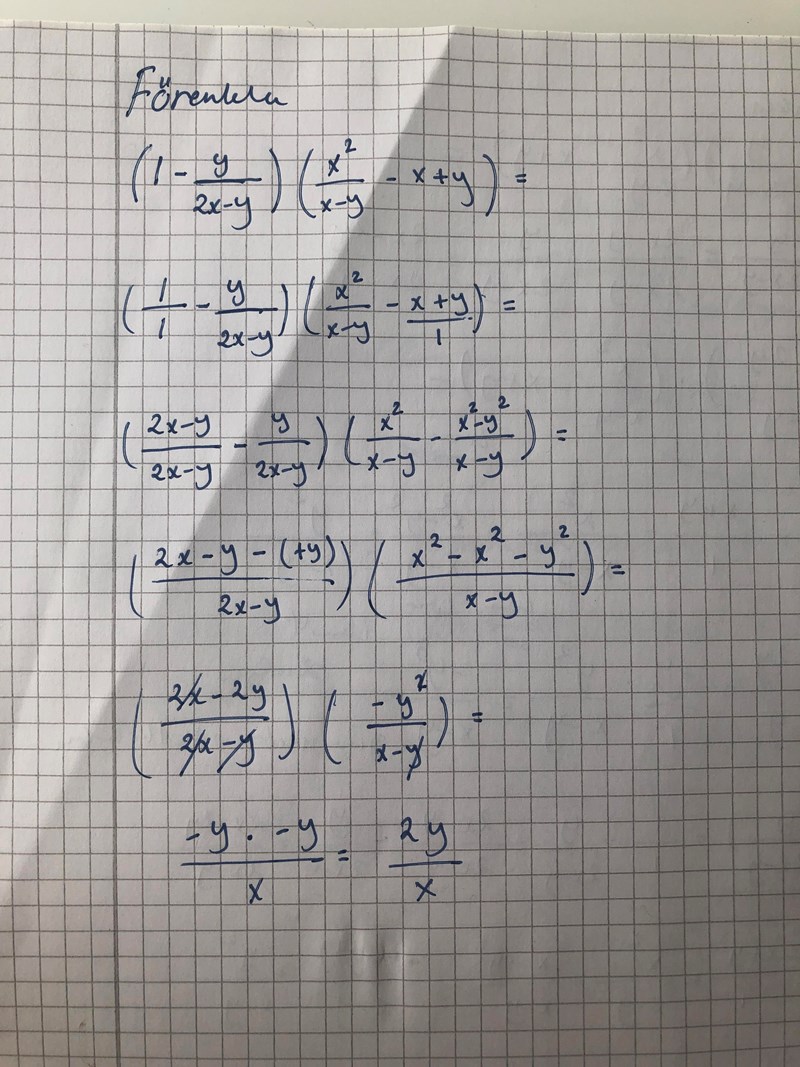 Förenkla
(1 - y/(2x-y)) (x²/(x-y) - x+y) =
(1/1 - y/(2x-y)) (x²/(x-y) - (x+y)/1) =
((2x-y)/(2x-y) - y/(2x-y)) (x²/(x-y) - (x²-y²)/(x-y)) =
((2x-y-(+y))/(2x-y)) ((x²-x²-y²)/(x-y)) =
((2x-2y)/(2x-y)) (-y²/(x-y)) =
(-y · -y)/x = 2y/x